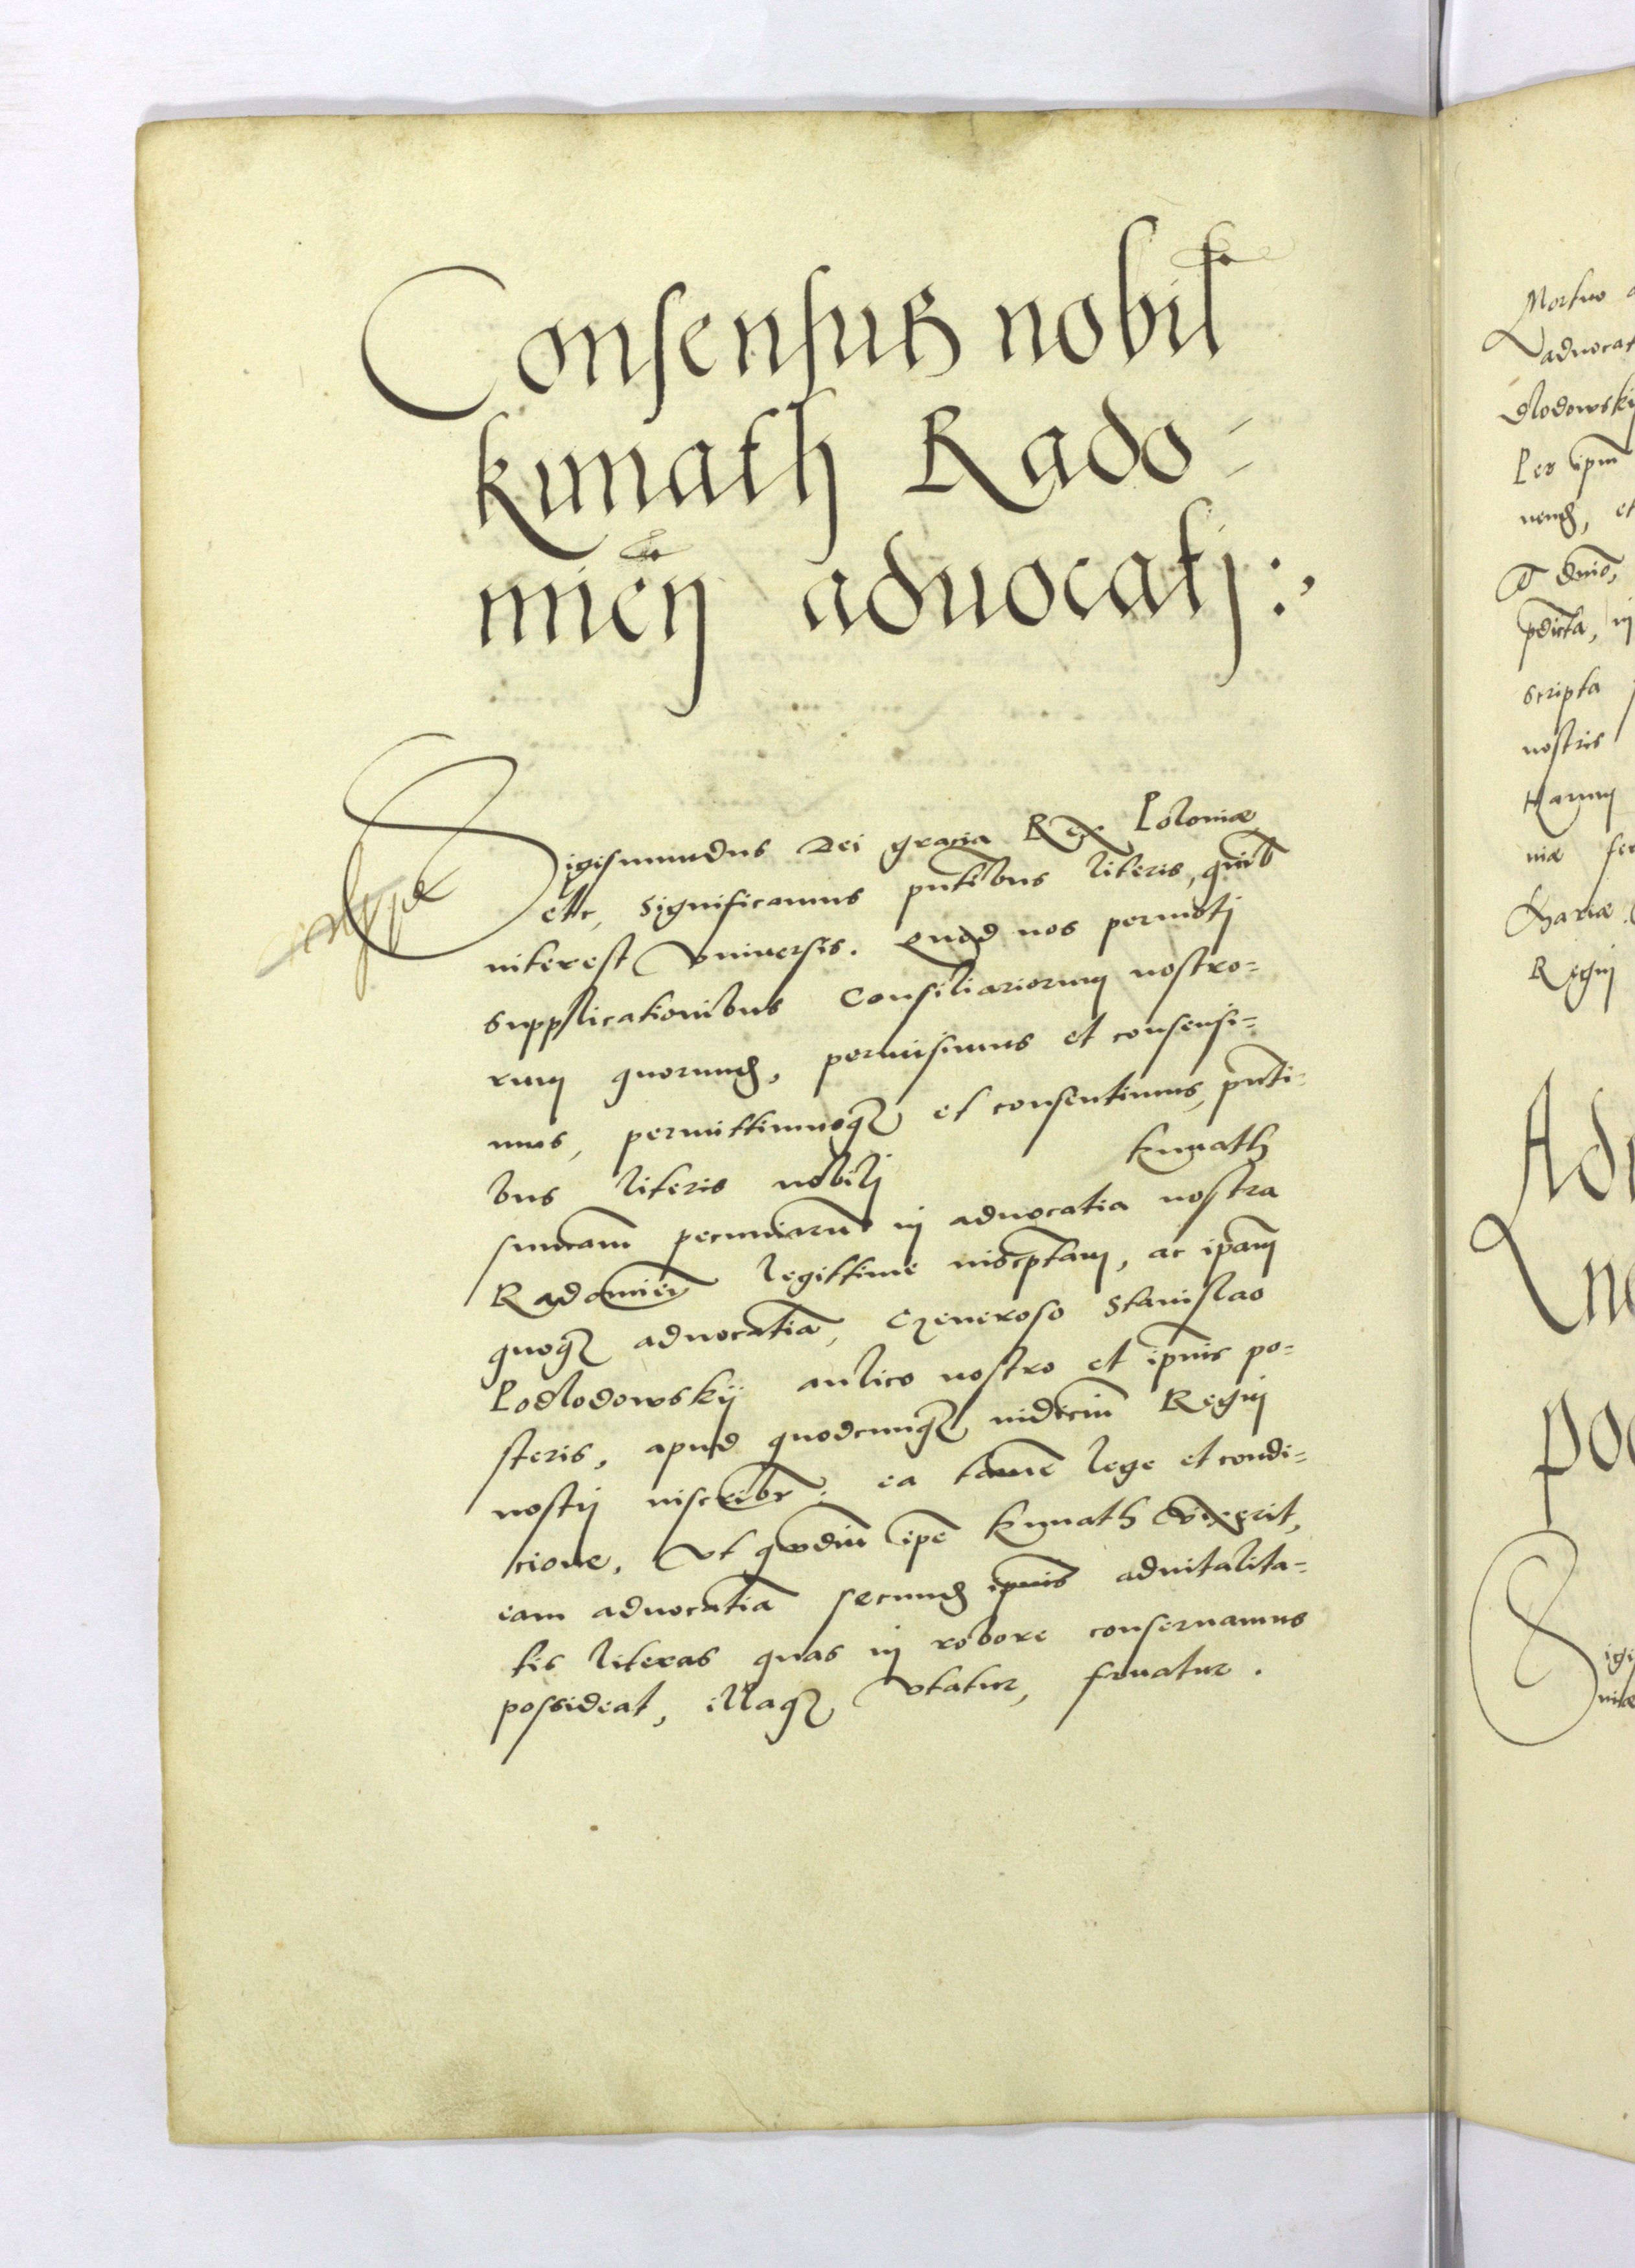 Consensus nobil
kmath Rado=
mień aduocatj:,
Sigismundus Dei gracia Rex Poloniæ
etc, Significamus pntibus literis, quib
interest Vniuersis. Quod nos permotj
supplicationibus Consiliariorum nostro=
rum quorund, permisimus et consensi=
mus, permittimusq et consentimus, pnti=
bus literis nobilj kmath
summam pecuniarũ in aduocatia nostra
Radomień legittime inscptam, ac ipam
quoq aduocatiã, Generoso Stanislao
Podlodowskij aulico nostro et ipius po=
steris, apud quodcunq iudiciũ Regnj
nostrj inscribr: ea tamẽ lege et condi=
cione, Vt quodiu ipe kmath Vixerit,
eam aduocatiã secund ipius aduitalita=
tis literas quas in robore conseruamus
possideat, illaq Vtatur, fruatur.
Mortuo
aduocat
dlodowskij
Per ipm
uend, et
pdicta, in
scripta
nostris
Harum
niæ fer
Mariæ
Regnj
Adu
po
Sigi